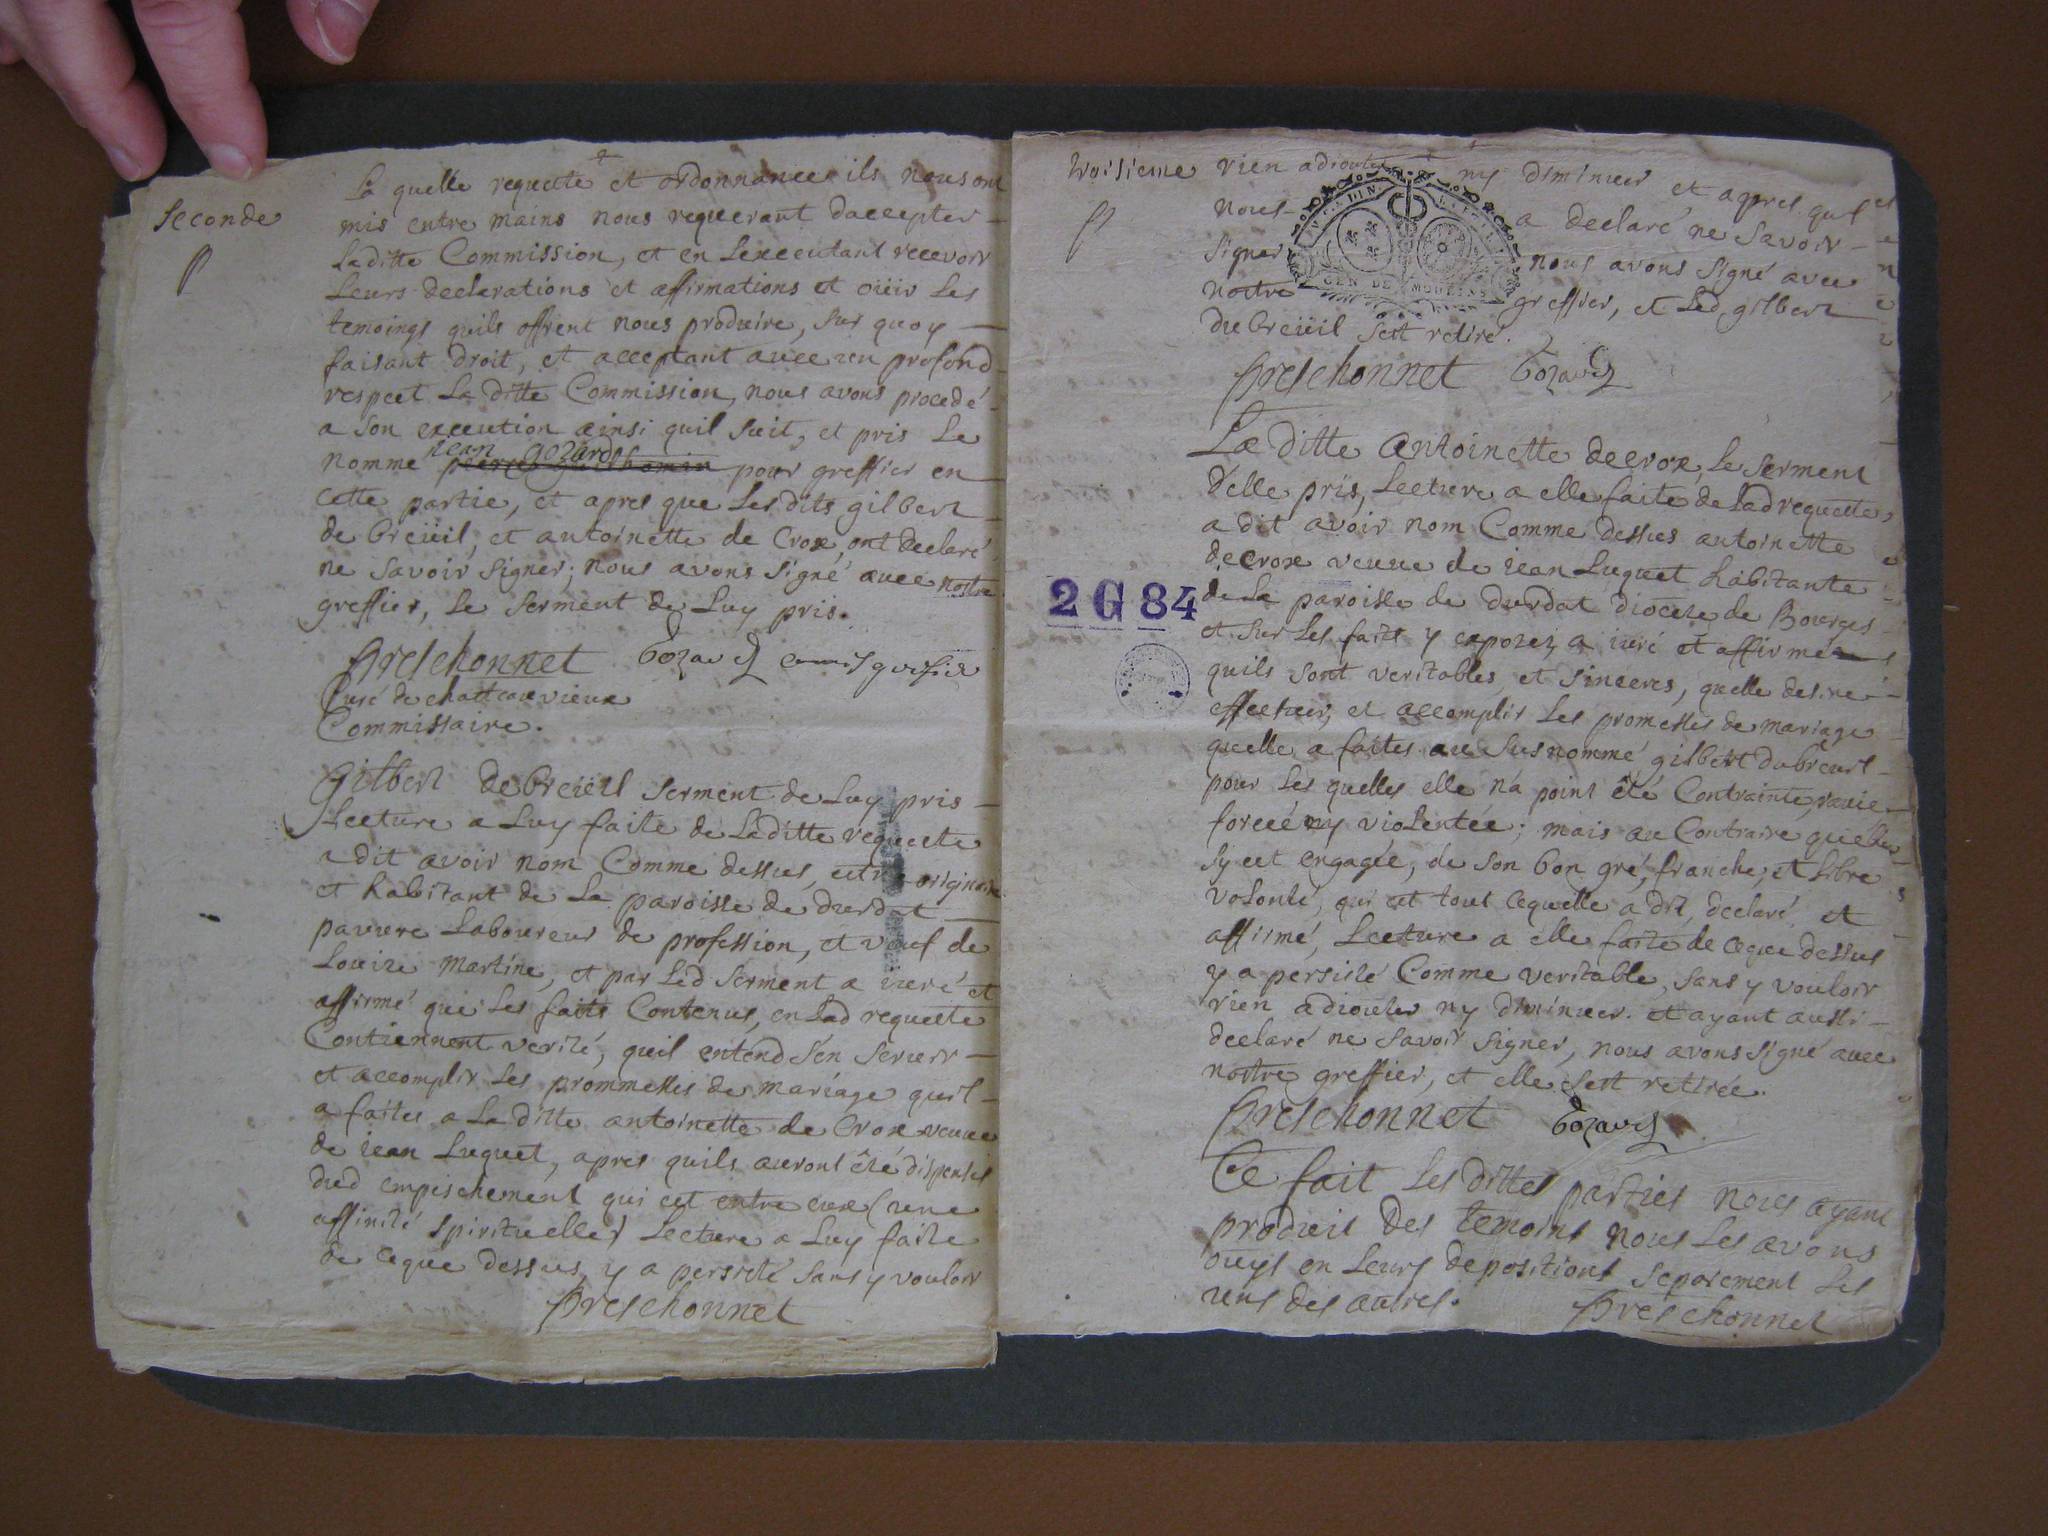 seconde
La quelle requeste et ordonnance ils nous ont
mis entre mains nous requerant daccepter
laditte Commission, et en Lexecutant recevoir
Leurs declarations et affirmations et oüir Les
temoings quils offrent nous produire, sur quoy
faisant droit, et acceptant avec un profond
respect La ditte Commission, nous avons procedé
a son execution ainsi quil suit, et pris Le
jean gozard
nomme pour greffier en
cette partie, et apres que Lesdits gilbert
de breüil, et antoinette de Crox, ont declaré
ne savoir signer; nous avons signé avec nostre
greffier, le serment de Luy pris.
Preschonnet Gozard
Curé de chatteauvieux
Commissaire.
Gilbert de breüil serment de Luy pris
Lecture a Luy faite de Laditte requeste
a dit avoir nom Comme dessus, estre originaire
et habitant de La paroisse de durdat
pauvre Laboureur de profession, et veuf de
Louize martine, et par Led serment a iuré et
affirmé que les faits Contenus, en Lad requeste
Contiennent verité, quil entend s'en servir
et accomplir Les prommesses de mariage quil
a faites a La ditte antoinette de Crox veuve
de iean Luquet, apres quils auront êté dispensés
dud empeschement qui est entre eux (une
affinité spirituelle) Lecture a Luy faite
de ceque dessus, y a persisté sans y vouloir
Preschonnet
troisieme
rien adiouter ny diminuer et apres quil
nous a declaré ne savoir
signer nous avons signé avec
nostre greffier, et Led gilbert
du breüil sest retiré.
GEN DE MOULINS
Preschonnet Gozard
La ditte antoinette decrox, le serment
d'elle pris, Lecture a elle faite de Lad requeste,
a dit avoir nom Comme dessus antoinette
decrox veuve de iean Luquet habitante
de La paroisse de durdat diocese de Bourges
et sur Les faits y exposez a iuré et affirmé
quils sont veritables, et sinceres, quelle desire
effectuer, et accomplir Les promesses de mariage
quelle a faites au susnommé gilbert dubreuil
pour Les quelles elle n'a point êté Contrainte, ravie
forcée ny violentée; mais au Contraire quelle
sy est engagée, de son bon gré, franche, et Libre
volonté, qui est tout cequelle a dit, declaré, et
affirmé, Lecture a elle faite de ceque dessus
y a persisté Comme veritable, sans y vouloir
rien adiouter ny diminuer. et ayant aussi
declaré ne savoir signer, nous avons signé avec
nostre greffier, et elle sest retirée.
Preschonnet Gozard
Ce fait Les dittes parties nous ayant
produit des temoins nous Les avons
ouys en Leurs depositions separement Les
uns des autres. Preschonnet
2 G 84